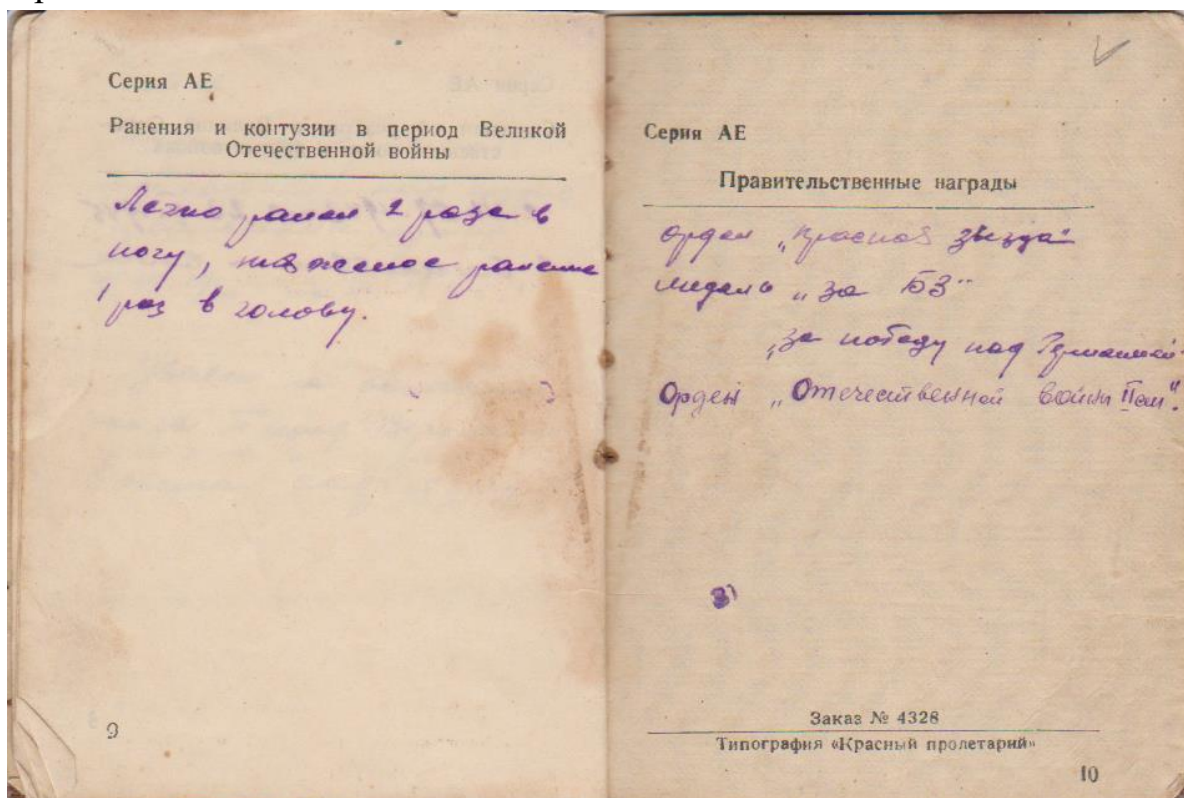 Серия АЕ
Ранения и контузии в период Великой
Отечественной войны
Легко ранен 2 раза в
ногу, тяжелое ранение
1 раз в голову.
9
Серия АЕ
Правительственные награды
орден „Красная звезда"
медаль „за БЗ"
„за победу над Германией
Орден „Отечественной войны II ст".
Заказ № 4328
Типография «Красный пролетарий»
10